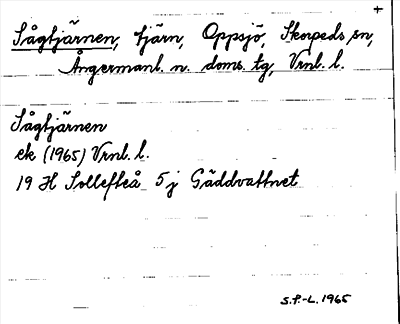 +
Sågtjärnen, tjärn, Oppsjö, Skorpeds sn,
Ångermanl. n. doms. tg, Vrnl. l.
Sågtjärnen
ek (1965) Vrnl. l.
19 H Sollefteå 5j Gäddvattnet
S.F.-L. 1965